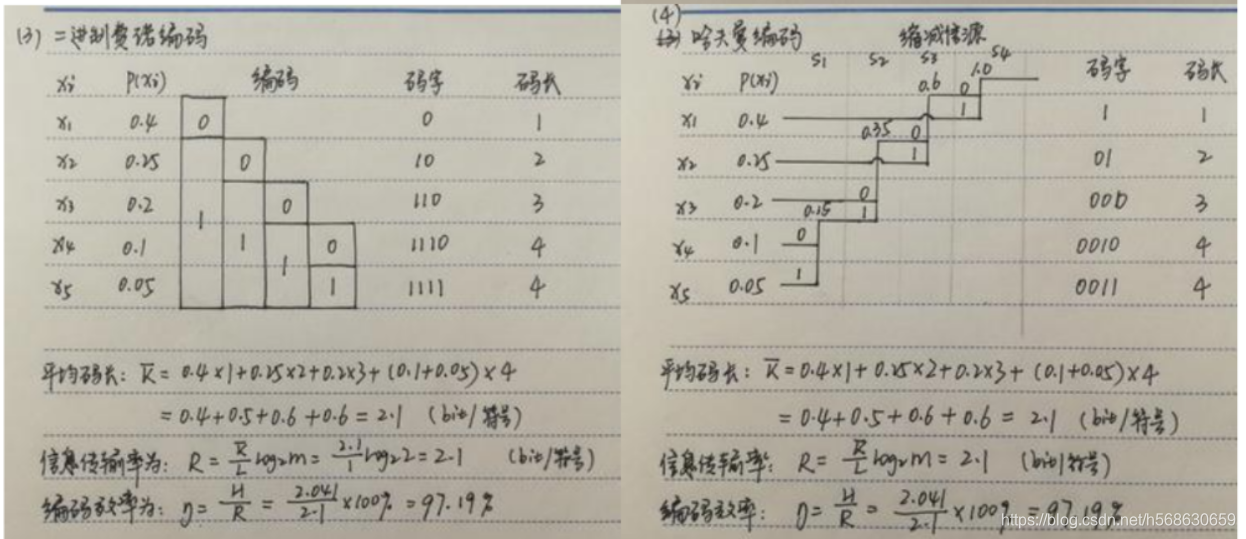 (3) 二进制费诺编码
xi P(xi) 编码 码字 码长
x1 0.4 0 0 1
x2 0.25 0 10 2
x3 0.2 0 110 3
x4 0.1 1 1 1 0 1110 4
x5 0.05 1 1111 4
平均码长: K̅ = 0.4×1+0.25×2+0.2×3+(0.1+0.05)×4
= 0.4+0.5+0.6+0.6 = 2.1 (bit/符号)
信息传输率为: R = K̅/L log₂m = 2.1/1 log₂2 = 2.1 (bit/符号)
编码效率为: η = H/R = 2.041/2.1 ×100% = 97.19%
(4)
(3) 哈夫曼编码 缩减信源
S1 S2 S3 S4
xi P(xi) 0.6 0 1.0 码字 码长
x1 0.4 1 1 1
0.35 0
x2 0.25 1 01 2
x3 0.2 0 000 3
0.15 1
x4 0.1 0 0010 4
x5 0.05 1 0011 4
平均码长: K̅ = 0.4×1+0.25×2+0.2×3+(0.1+0.05)×4
= 0.4+0.5+0.6+0.6 = 2.1 (bit/符号)
信息传输率: R = K̅/L log₂m = 2.1 (bit/符号)
编码效率: η = H/R = 2.041/2.1 ×100% = 97.19%
https://blog.csdn.net/h568630659